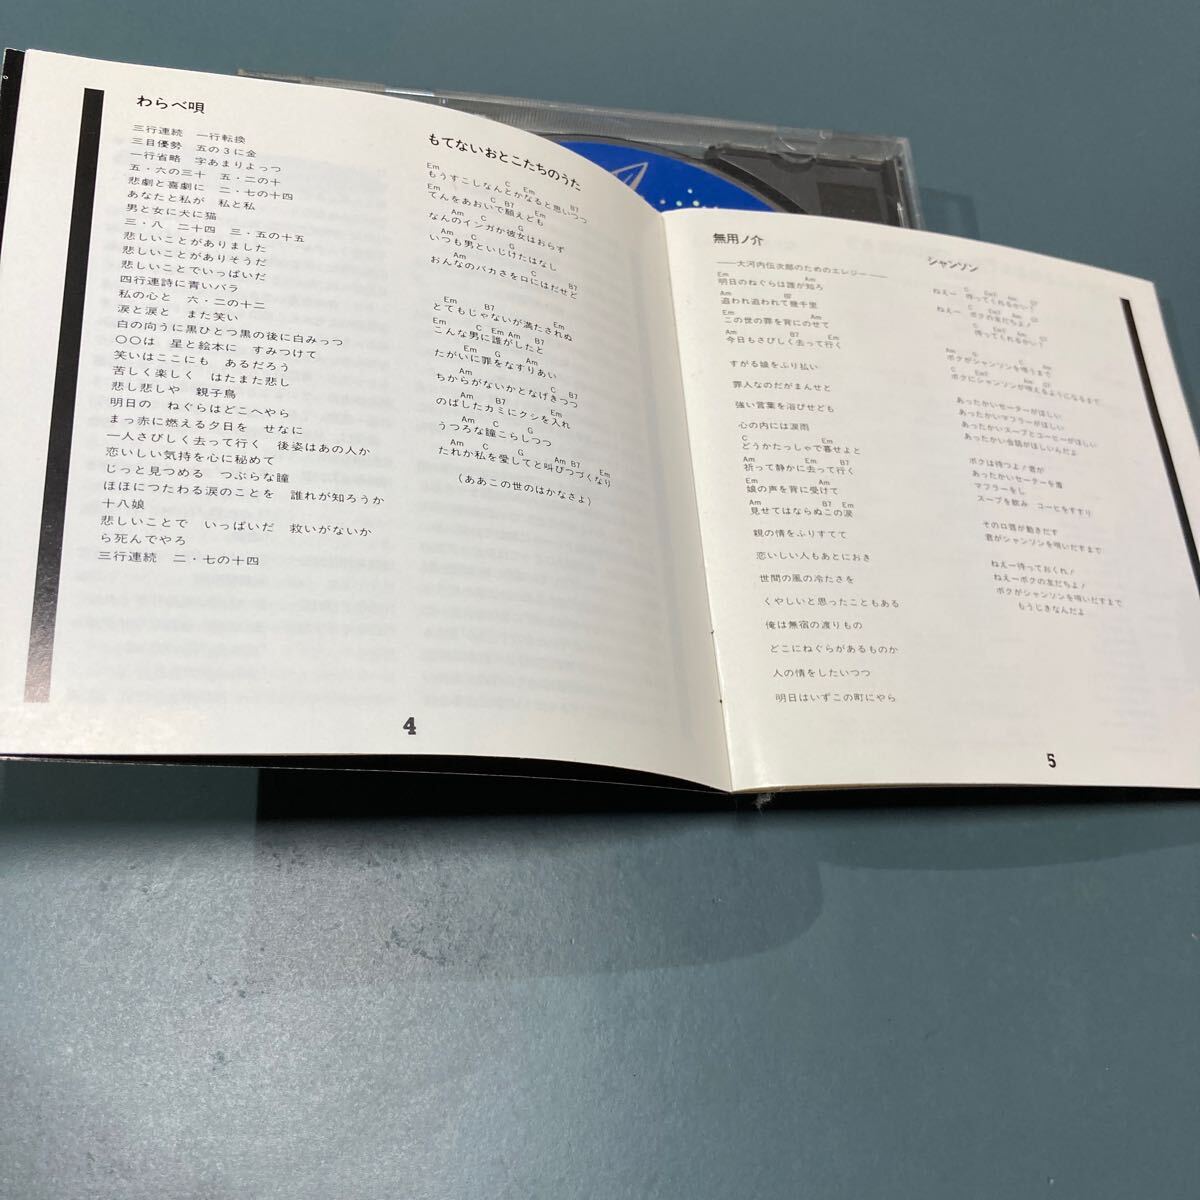 わらべ唄
三行連続　一行転換
三目優勢　五の3に金
一行省略　字あまりよっつ
五・六の三十　五・二の十
悲劇と喜劇に　二・七の十四
あなたと私が　私と私
男と女に犬に猫
三・八　二十四　三・五の十五
悲しいことがありました
悲しいことがありそうだ
悲しいことでいっぱいだ
四行連詩に青いバラ
私の心と　六・二の十二
涙と涙と　また笑い
白の向うに黒ひとつ黒の後に白みっつ
〇〇は　星と絵本に　すみつけて
笑いはここにも　あるだろう
苦しく楽しく　はたまた悲し
悲し悲しや　親子鳥
明日の　ねぐらはどこへやら
まっ赤に燃える夕日を　せなに
一人さびしく去って行く　後姿はあの人か
恋いしい気持を心に秘めて
じっと見つめる　つぶらな瞳
ほほにつたわる涙のことを　誰れが知ろうか
十八娘
悲しいことで　いっぱいだ　救いがないか
ら死んでやろ
三行連続　二・七の十四
もてないおとこたちのうた
Em C Em B7
もうすこしなんとかなると思いつつ
Em C B7 Em
てんをあおいで願えども
Am C G
なんのインガか彼女はおらず
Am C G
いつも男といじけたはなし
Am C
おんなのバカさをロにはだせど
Em B7
とてもじゃないが満たされぬ
Em C Em Am B7 Em
こんな男に誰がしたと
Em G Am
たがいに罪をなすりあい
Am C B7
ちからがないかとなげきつつ
Am B7 Em
のばしたカミにクシを入れ
Am C G
うつろな瞳こらしつつ
Am C G Am B7 Em
たれか私を愛してと叫びつづくなり
(ああこの世のはかなさよ)
4
無用ノ介
――大河内伝次郎のためのエレジー――
Em Am
明日のねぐらは誰が知ろ
Am B7
追われ追われて幾千里
Em Am
この世の罪を背にのせて
Am B7 Em
今日もさびしく去って行く
すがる娘をふり払い
罪人なのだがまんせと
強い言葉を浴びせども
心の内には涙雨
C Em
どうかたっしゃで暮せよと
Am Em B7
祈って静かに去って行く
Em Am
娘の声を背に受けて
Am B7 Em
見せてはならぬこの涙
親の情をふりすてて
恋いしい人もあとにおき
世間の風の冷たさを
くやしいと思ったこともある
俺は無宿の渡りもの
どこにねぐらがあるものか
人の情をしたいつつ
明日はいずこの町にやら
シャンソン
C Em7 Am G7
ねえー　待ってくれるかい？
C Em7 Am G7
ねえー　ボクの友だちよ！
C Em7 Am G7
待ってくれるかい？
Am G C
ボクがシャンソンを唄うまで
C Em7 Am G7
ボクにシャンソンが唄えるようになるまで
あったかいセーターがほしい
あったかいマフラーがほしい
あったかいスープとコーヒーがほしい
あったかい会話がほしいんだよ
ボクは待つよ！君が
あったかいセーターを着
マフラーをし
スープを飲み　コーヒをすすり
そのロ唇が動きだす
君がシャンソンを唄いだすまで
ねえー待っておくれ！
ねえーボクの友だちよ！
ボクがシャンソンを唄いだすまで
もうじきなんだよ
5